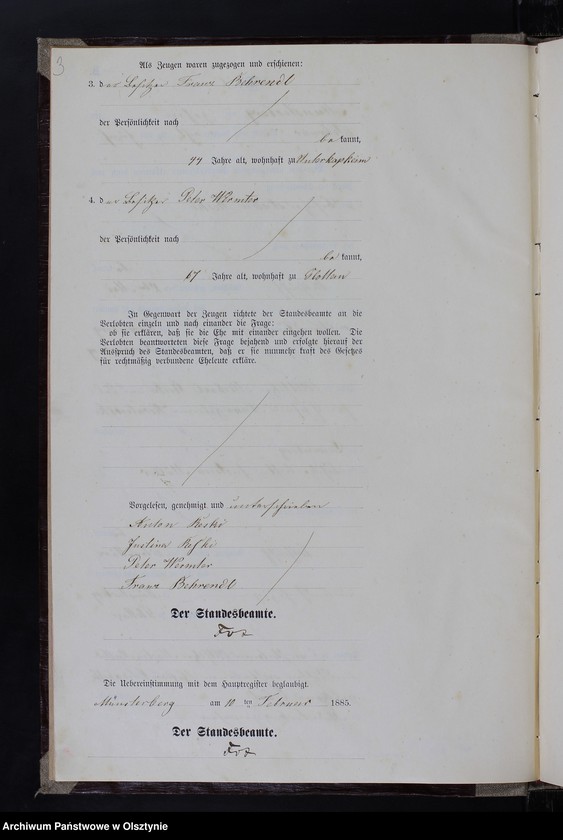 3
Als Zeugen waren zugezogen und erschienen:
3. der Besitzer Franz Behrendt
der Persönlichkeit nach
be kannt,
44 Jahre alt, wohnhaft zu Unterkapkeim
4. der Besitzer Peter Wermter
der Persönlichkeit nach
be kannt,
Jahre alt, wohnhaft zu
In Gegenwart der Zeugen richtete der Standesbeamte an die
Verlobten einzeln und nach einander die Frage:
ob sie erklären, daß sie die Ehe mit einander eingehen wollen. Die
Verlobten beantworteten diese Frage bejahend und erfolgte hierauf der
Ausspruch des Standesbeamten, daß er sie nunmehr kraft des Gesetzes
für rechtmäßig verbundene Eheleute erkläre.
Vorgelesen, genehmigt und unterschrieben
Anton
Justina
Peter Wermter
Franz Behrendt
Der Standesbeamte.
Die Uebereinstimmung mit dem Hauptregister beglaubigt.
Münsterberg am 10 ten Februar 1885.
Der Standesbeamte.
Archiwum Państwowe w Olsztynie